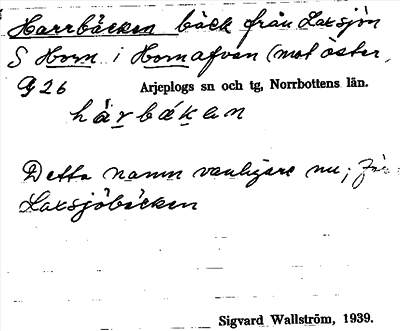 Harrbäcken bäck från Laxsjön
S Horn i Hornafvan (mot öster,
G 26 Arjeplogs sn och tg, Norrbottens län.
hárbákan
Detta namn vanligare nu; Jfr
Laxsjöbäcken
Sigvard Wallström, 1939.